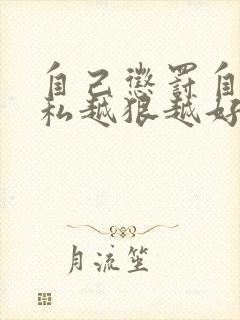 自己惩罚自
私越狠越好
月流笙